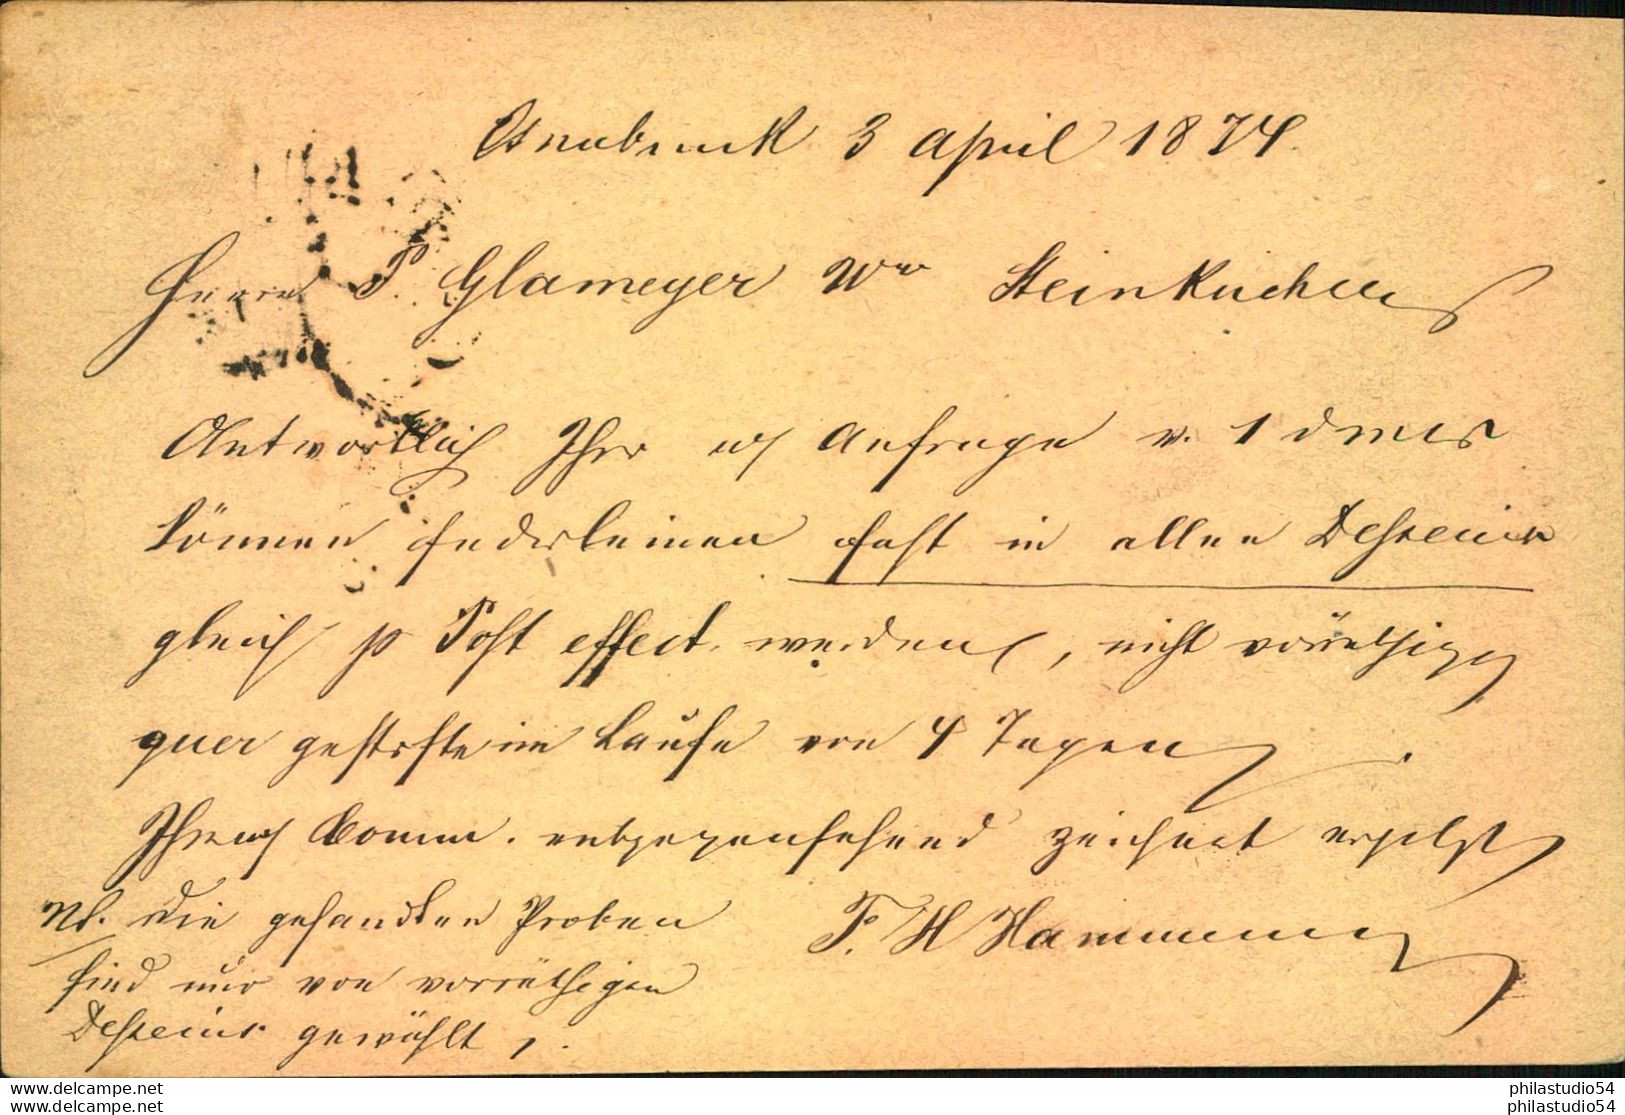 Osnabruck 3 April 1874.
Herrn P. Glameyer Ww Steinkirchen
Antwortlich Ihre Anfrage v. 1 d mts
können federleinen fast in allen Desseins
gleich p Post effect. werden, nicht vorräthige
quer gestrfte im Laufe von 4 Tagen
Ihren Comm. entgegensehend zeichnet ergebst
F. H Hammer
Nb. Die gesandten Proben
sind nur von vorräthigen
Desseins gewählt.
delcampe.net
delcampe.net
philastudio54
philastudio54